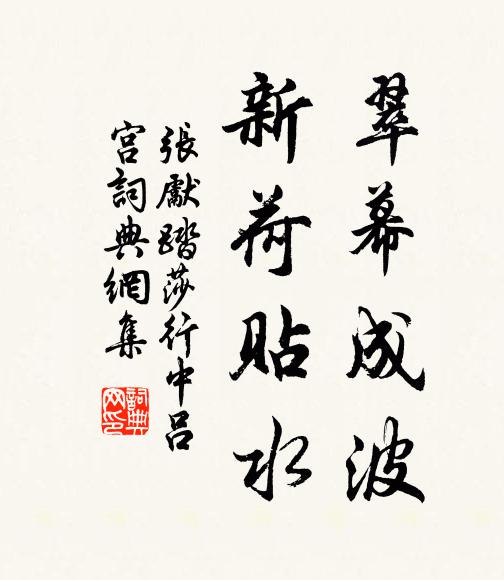 翠幕成波
新荷貼水
張獻踏莎行中呂
宮詞典網集
詞典
網印